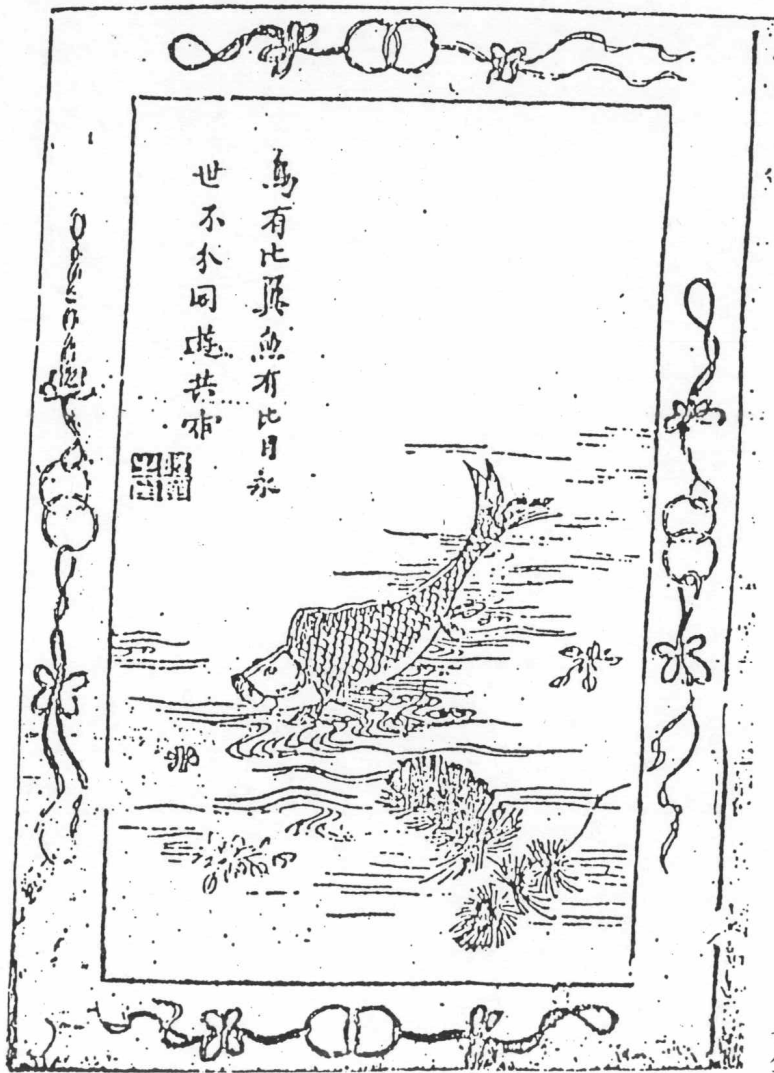 鳥有比翼魚有比目永
世不分同遊共宿